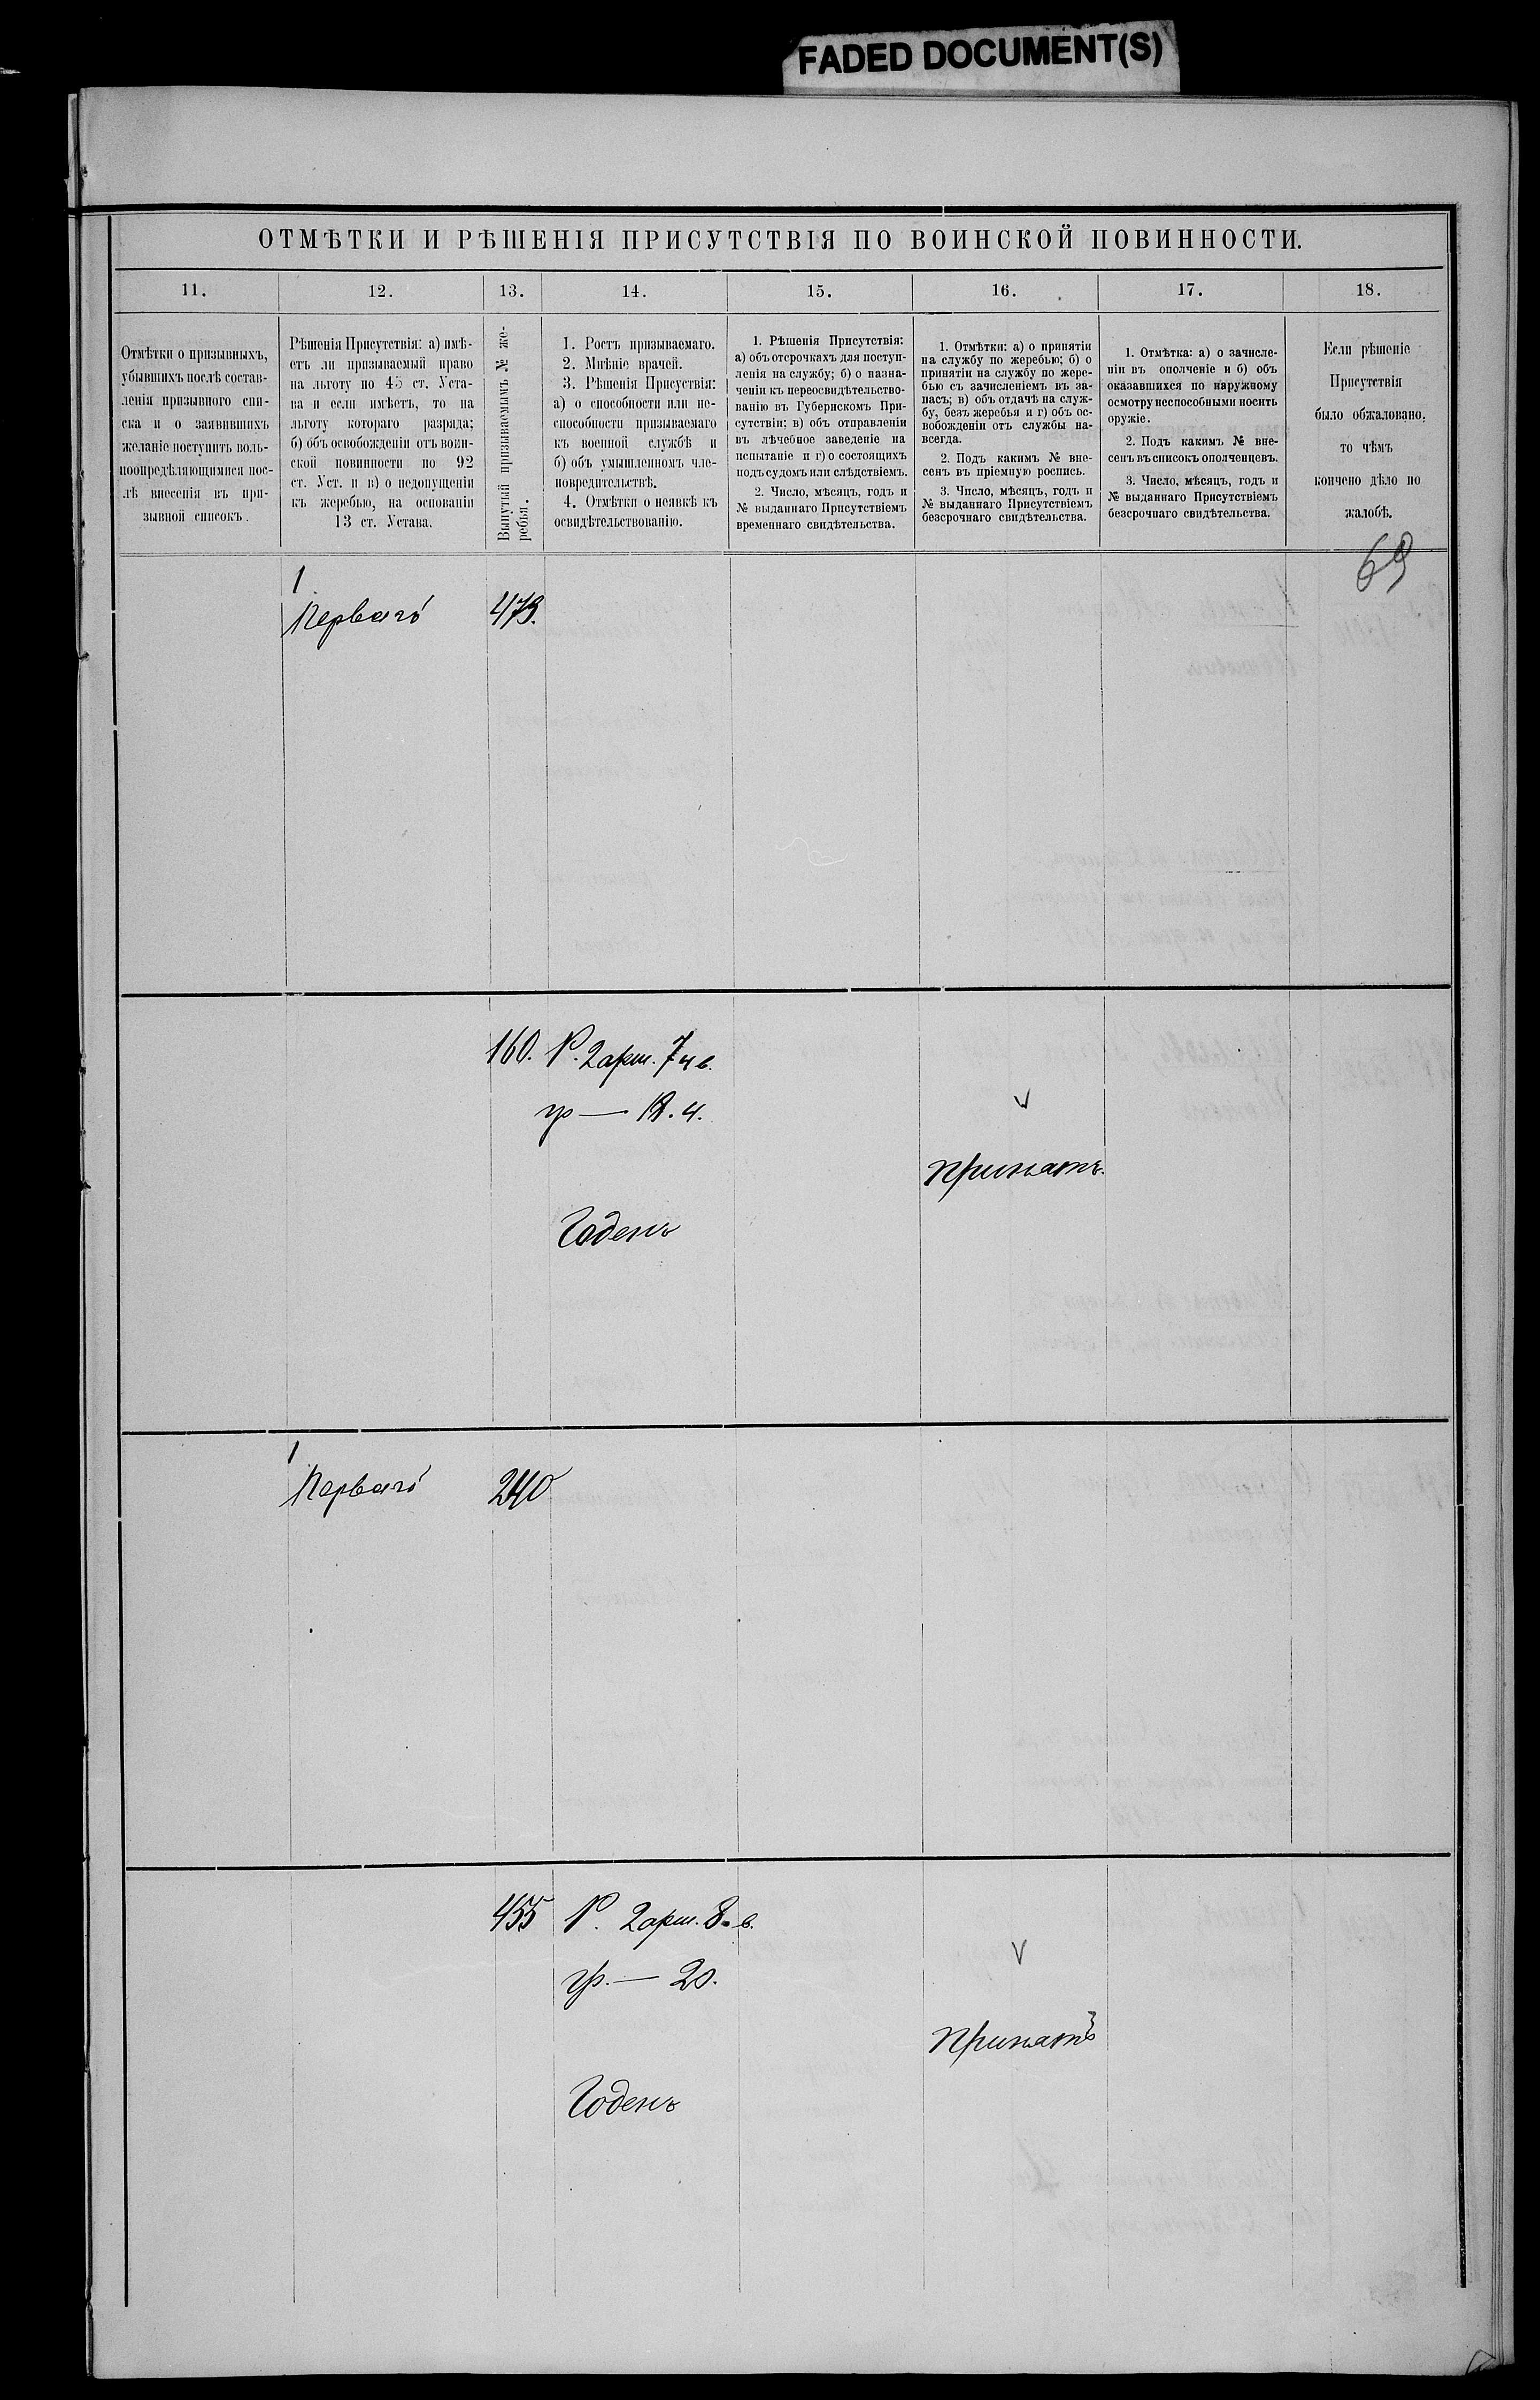 FADED DOCUMENT(S)
ОТМѢТКИ И РѢШЕНІЯ ПРИСУТСТВІЯ ПО ВОИНСКОЙ ПОВИННОСТИ.
11. 12. 13. 14. 15. 16. 17. 18.
Отмѣтки о призывныхъ,
убывшихъ послѣ состав-
ленія призывного спи-
ска и о заявившихъ
желаніе поступить воль-
ноопредѣляющимися пос-
лѣ внесенія въ при-
зывной списокъ.
Рѣшенія Присутствія: а) имѣ-
етъ ли призываемый право
на льготу по 45 ст. Уста-
ва и если имѣетъ, то на
льготу котораго разряда;
б) объ освобожденіи отъ воин-
ской повинности по 92
ст. Уст. и в) о недопущеніи
къ жеребью, на основаніи
13 ст. Устава.
Вынутый призываемымъ № же-
ребья.
1. Ростъ призываемаго.
2. Мнѣніе врачей.
3. Рѣшенія Присуствія:
а) о способности или не-
способности призываемаго
къ военной службѣ и
б) объ умышленномъ чле-
новредительствѣ.
4. Отмѣтки о неявкѣ къ
освидѣтельствованію.
1. Рѣшенія Присутствія:
а) объ отсрочкахъ для поступ-
ленія на службу; б) о назна-
ченіи къ переосвидѣтельство-
ванію въ Губернскомъ При-
сутствіи; в) объ отправленіи
въ лѣчебное заведеніе на
испытаніе и г) о состоящихъ
подъ судомъ или слѣдствіемъ.
2. Число, мѣсяцъ, годъ и
№ выданнаго Присутствіемъ
временнаго свидѣтельства.
1. Отмѣтки: а) о принятіи
на службу по жеребью; б) о
принятіи на службу по жере-
бью съ зачисленіемъ въ за-
пасъ; в) объ отдачѣ на служ-
бу, безъ жеребья и г) объ ос-
вобожденіи отъ службы на-
всегда.
2. Подъ какимъ № вне-
сенъ въ пріемную роспись.
3. Число, мѣсяцъ, годъ и
№ выданнаго Присутствіемъ
безсрочнаго свидѣтельства.
1. Отмѣтка: а) о зачисле-
ніи въ ополченіе и б) объ
оказавшихся по наружному
осмотру неспособными носить
оружіе.
2. Подъ какимъ № вне-
сенъ въ списокъ ополченцевъ.
3. Число, мѣсяцъ, годъ и
№ выданнаго Присутствіемъ
безсрочнаго свидѣтельства.
Если рѣшеніе
Присутствія
было обжаловано,
то чѣмъ
кончено дѣло по
жалобѣ.
69
1
Перваго 473.
160. Р. 2 арш. 7 ч в.
гр — 18. ч.
V
принятъ.
Годенъ
1
Перваго 240
455 Р. 2 арш. 8 в.
гр. — 20.
V
принятъ
Годенъ